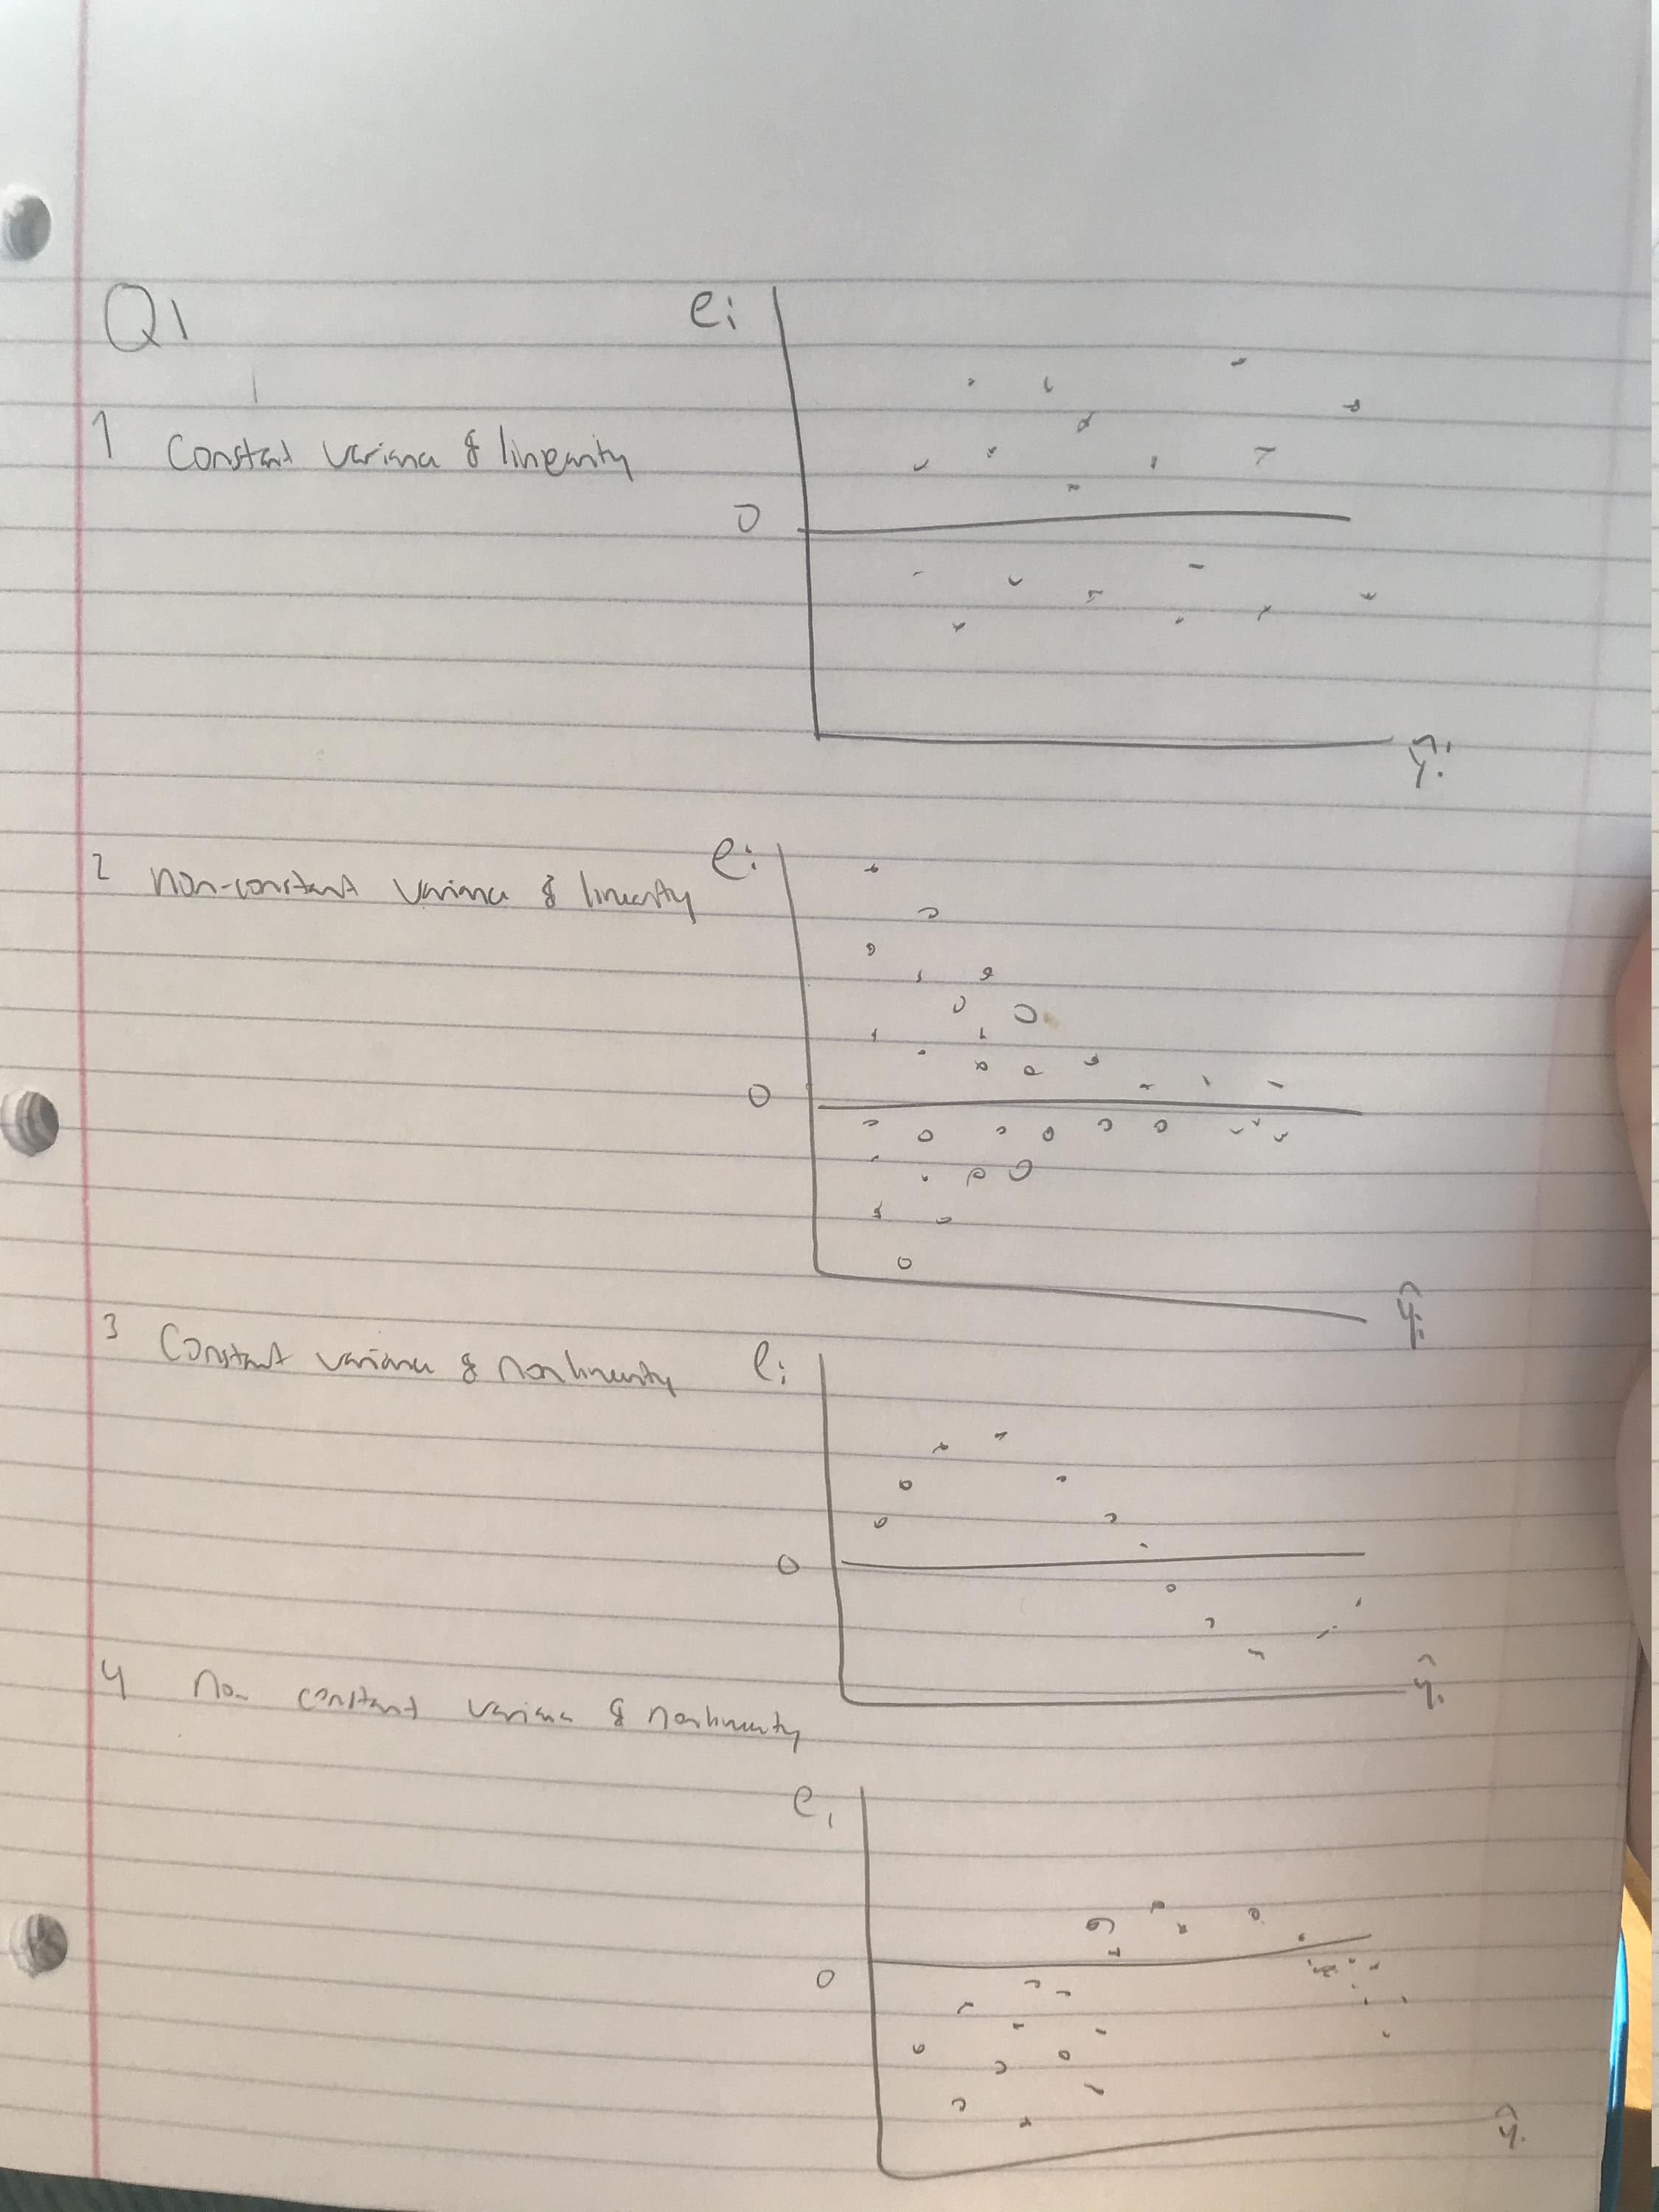 Q1
ei
1 Constant variance & linearity
0
ŷi
2 non-constant variance & linearity
ei
0
ŷi
3 Constant variance & nonlinearity
ei
0
ŷi
4 Non constant variance & nonlinearity
ei
0
ŷi